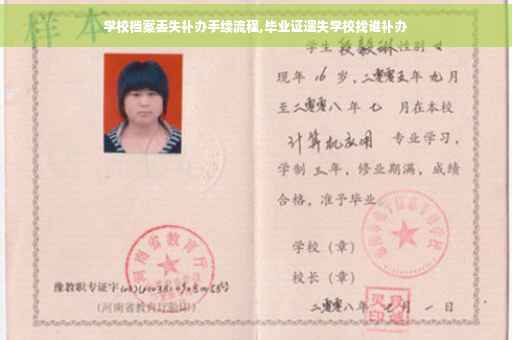 学校档案丢失补办手续流程,毕业证遗失学校找谁补办
样本
学生 段毅琳 性别 女
现年 16 岁,二零零五年九月
至二零零八年七 月在本校
计算机应用 专业学习,
学制 三年,修业期满,成绩
合格,准予毕业
学校(章)
校长(章)
二零零八年 月一日
河南省教育厅
豫教职专证字
(河南省教育厅验印)